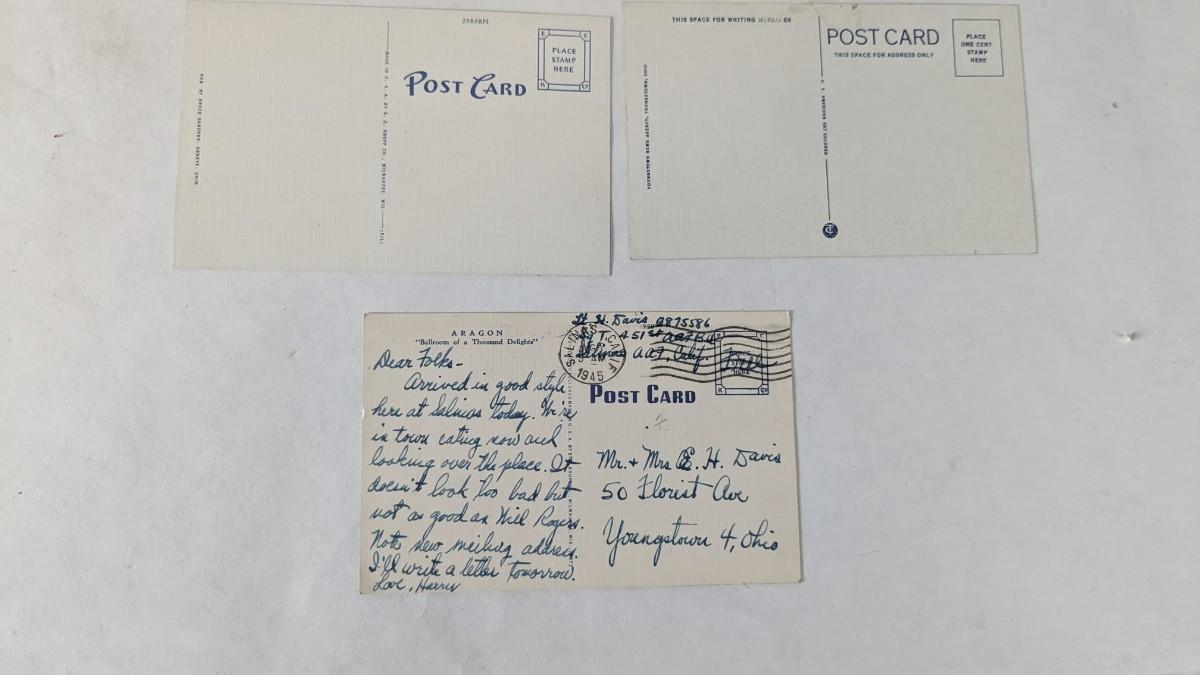 29808N
E C
PLACE
STAMP
HERE
K Co
POST CARD
MADE IN U. S. A. BY E. C. KROPP CO., MILWAUKEE, WIS.
PUB. BY SPACE GARDNER, GENEVA, OHIO
THIS SPACE FOR WRITING
POST CARD
THIS SPACE FOR ADDRESS ONLY
PLACE
ONE CENT
STAMP
HERE
YOUNGSTOWN NEWS AGENCY, YOUNGSTOWN, OHIO
C. T. AMERICAN ART COLORED
CT
ARAGON
"Ballroom of a Thousand Delights"
Dear Folks-
Arrived in good style
here at Salinas today. We're
in town eating now and
looking over the place. It
doesn't look too bad but
not as good as Will Rogers.
Note new mailing address.
I'll write a letter tomorrow.
Love, Harry
Lt H. Davis
451st
Salinas AAF, Calif.
Free
SALINAS CALIF.
1945
POST CARD
Mr. + Mrs E. H. Davis
50 Florist Ave
Youngstown 4, Ohio